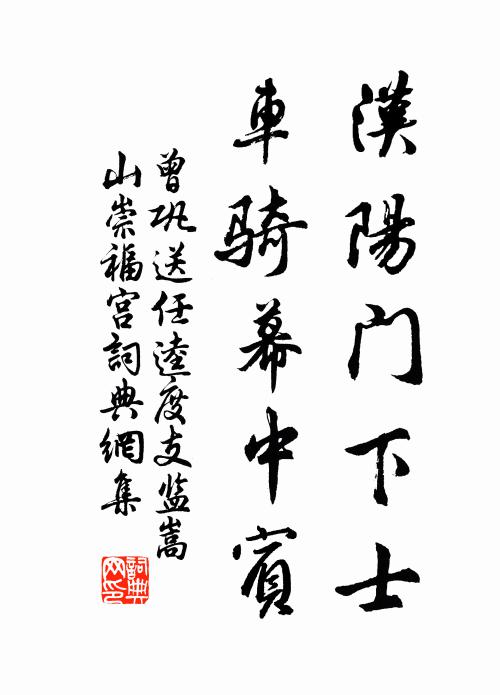 漢陽門下士
車騎幕中賓
曾巩送任逵度支监嵩
山崇福宫詞典網集
詞典
网印